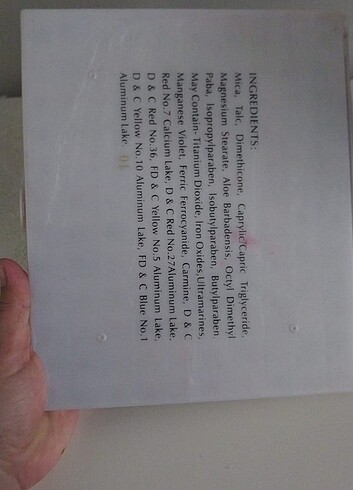 INGREDIENTS:
Mica, Talc, Dimethicone, Caprylic/Capric Triglyceride,
Magnesium Stearate, Aloe Barbadensis, Octyl Dimethyl
Paba, Isopropylparaben, Isobutylparaben, Butylparaben
May Contain- Titanium Dioxide, Iron Oxides,Ultramarines,
Manganese Violet, Ferric Ferrocyanide, Carmine, D & C
Red No.7 Calcium Lake, D & C Red No.27Aluminum Lake,
D & C Red No.36, FD & C Yellow No.5 Aluminum Lake,
D & C Yellow No.10 Aluminum Lake, FD & C Blue No.1
Aluminum Lake. 01